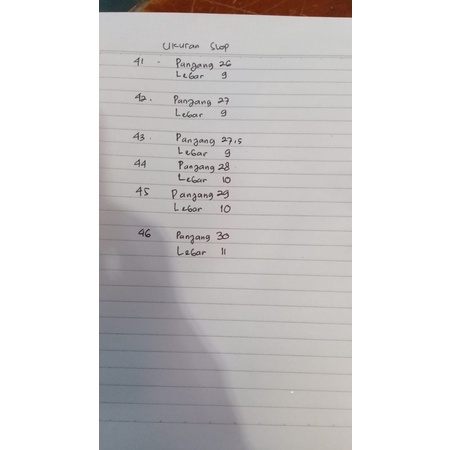 Ukuran Slop
41 - Panjang 26
Lebar 9
42. Panjang 27
Lebar 9
43. Panjang 27,5
Lebar 9
44 Panjang 28
Lebar 10
45 Panjang 29
Lebar 10
46 Panjang 30
Lebar 11